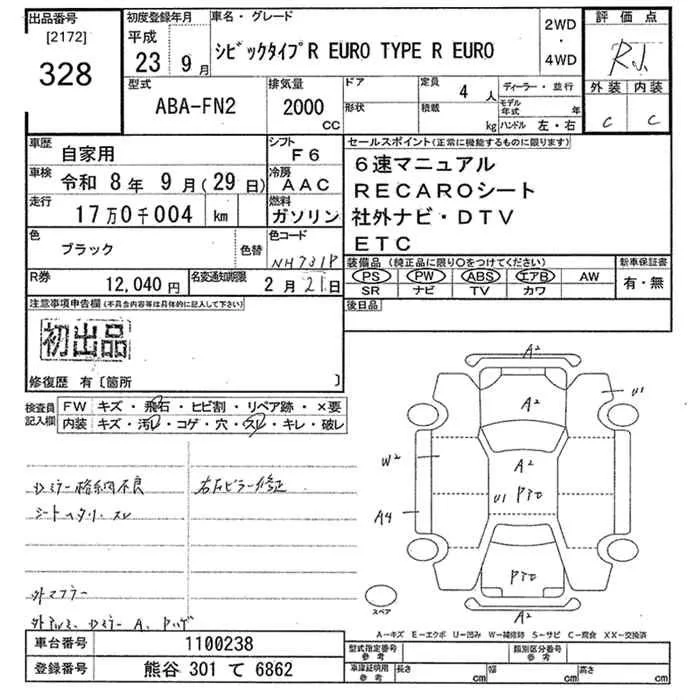 出品番号 初度登録年月 車名・グレード 2WD ・ 4WD 評価点
[2172]
328
平成 23 9月
シビックタイプR EURO TYPE R EURO
外装 内装
C C
型式 排気量 ドア 定員 ディーラー・並行
ABA-FN2 2000 CC 形状 積載 4人 kg モデル年式 年 ハンドル 左・右
車歴 自家用 シフト F6
車検 令和 8年 9月(29日) 冷房 AAC
走行 17万0千004 km 燃料 ガソリン
色 ブラック 色替 色コード NH731P
R券 12,040円 名変通知期限 2月 21日
セールスポイント(正常に機能するものに限ります)
6速マニュアル
RECAROシート
社外ナビ・DTV
ETC
装備品 (純正品に限り○をつけてください) 新車保証書
PS PW ABS エアB AW 有・無
SR ナビ TV カワ
後日品
注意事項申告欄(不具合内容等は具体的に記入して下さい)
初出品
修復歴 有〔箇所 〕
検査員記入欄 FW キズ・飛石・ヒビ割・リペア跡・×要
内装 キズ・汚レ・コゲ・穴・スレ・キレ・破レ
ドミラー格納不良 右Bピラー修正
シートヘタリ、スレ
外マフラー
A2
A2
U1
W2
A2
U1
A4
スペア
A2
A-キズ E-エクボ U-凹み W-補修跡 S-サビ C-腐食 XX-交換済
車台番号 1100238 型式指定番号 参考 類別区分番号 参考
登録番号 熊谷 301 て 6862 車庫証明用 参考 長さ cm 幅 cm 高さ cm